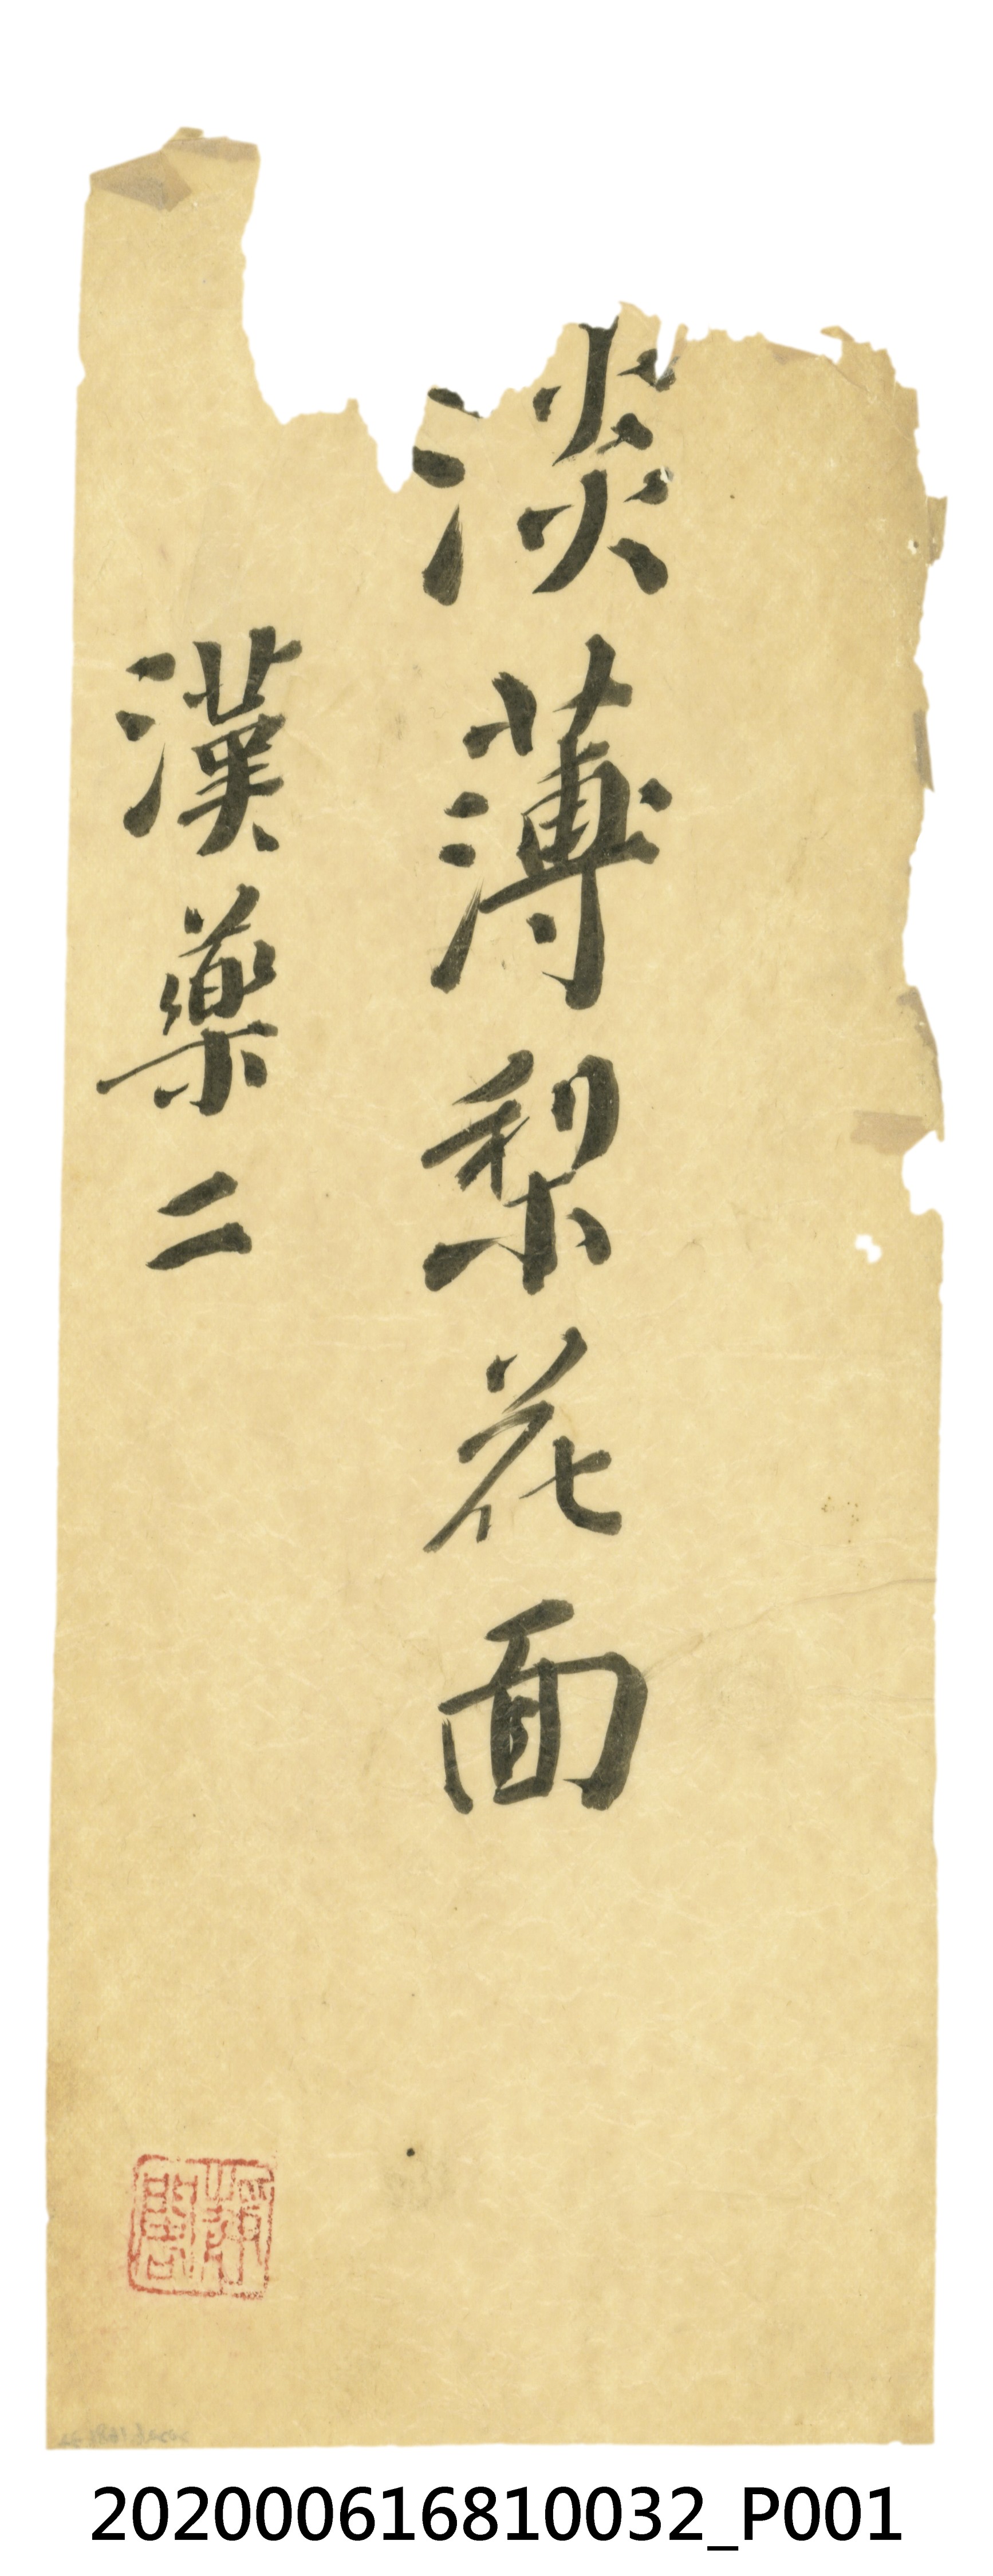 淡薄梨花面
漢藥二
202000616810032_P001